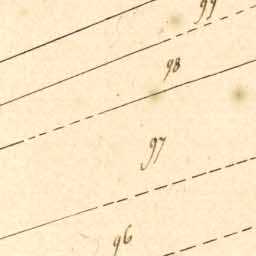 99
98
97
96